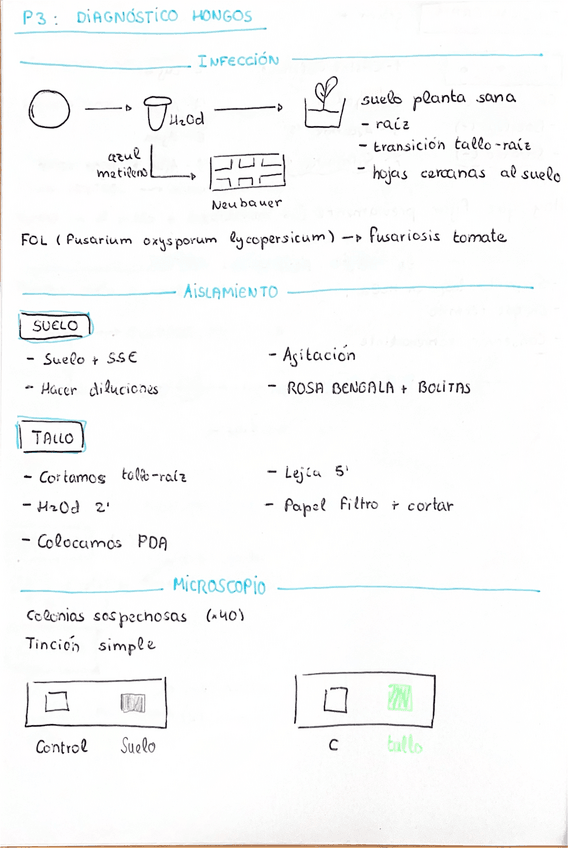 P3: DIAGNÓSTICO HONGOS
INFECCIÓN
H₂Od
azul
metileno
Neubauer
suelo planta sana
- raíz
- transición tallo-raíz
- hojas cercanas al suelo
FOL (Fusarium oxysporum lycopersicum) → fusariosis tomate
AISLAMIENTO
SUELO
- Suelo + SSE
- Agitación
- Hacer diluciones
- ROSA BENGALA + BOLITAS
TALLO
- Cortamos tallo-raíz
- Lejía 5'
- H₂Od 2'
- Papel filtro + cortar
- Colocamos PDA
MICROSCOPIO
Colonias sospechosas (×40)
Tinción simple
Control Suelo
C tallo